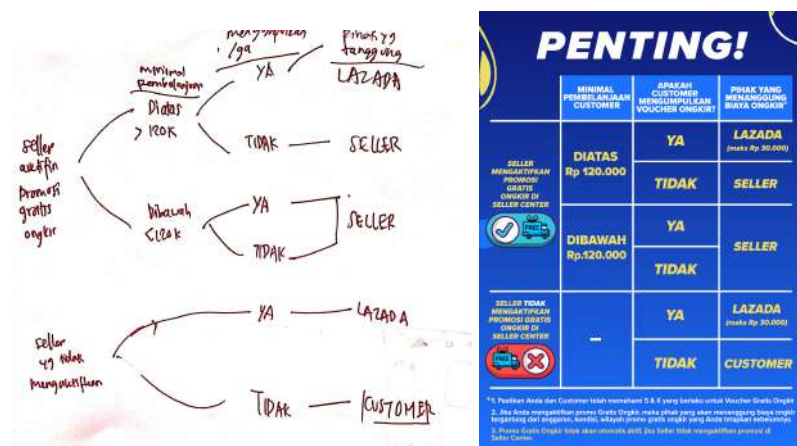 mengumpulkan
/ga
pihak yg
tanggung
minimal
pembelanjaan
YA
LAZADA
Diatas
> 120K
TIDAK
SELLER
seller
aktifin
promosi
gratis
ongkir
Dibawah
<120K
YA
TIDAK
SELLER
seller
yg tidak
mengaktifkan
YA
LAZADA
TIDAK
CUSTOMER
PENTING!
MINIMAL
PEMBELANJAAN
CUSTOMER
APAKAH
CUSTOMER
MENGUMPULKAN
VOUCHER ONGKIR?
PIHAK YANG
MENANGGUNG
BIAYA ONGKIR*
SELLER
MENGAKTIFKAN
PROMOSI
GRATIS
ONGKIR DI
SELLER CENTER
FREE
DIATAS
Rp 120.000
YA
LAZADA
(maks Rp 30.000)
TIDAK
SELLER
DIBAWAH
Rp.120.000
YA
TIDAK
SELLER
SELLER TIDAK
MENGAKTIFKAN
PROMOSI GRATIS
ONGKIR DI
SELLER CENTER
FREE
-
YA
LAZADA
(maks Rp 30.000)
TIDAK
CUSTOMER
*1. Pastikan Anda dan Customer telah memahami S & K yang berlaku untuk Voucher Gratis Ongkir
2. Jika Anda mengaktifkan promo Gratis Ongkir, maka pihak yang akan menanggung biaya ongkir
tergantung dari anggaran, kondisi, wilayah promo gratis ongkir yang Anda tetapkan sebelumnya
3. Promo Gratis Ongkir tidak akan otomatis aktif, jika Seller tidak mengaktifkan promosi di
Seller Center.